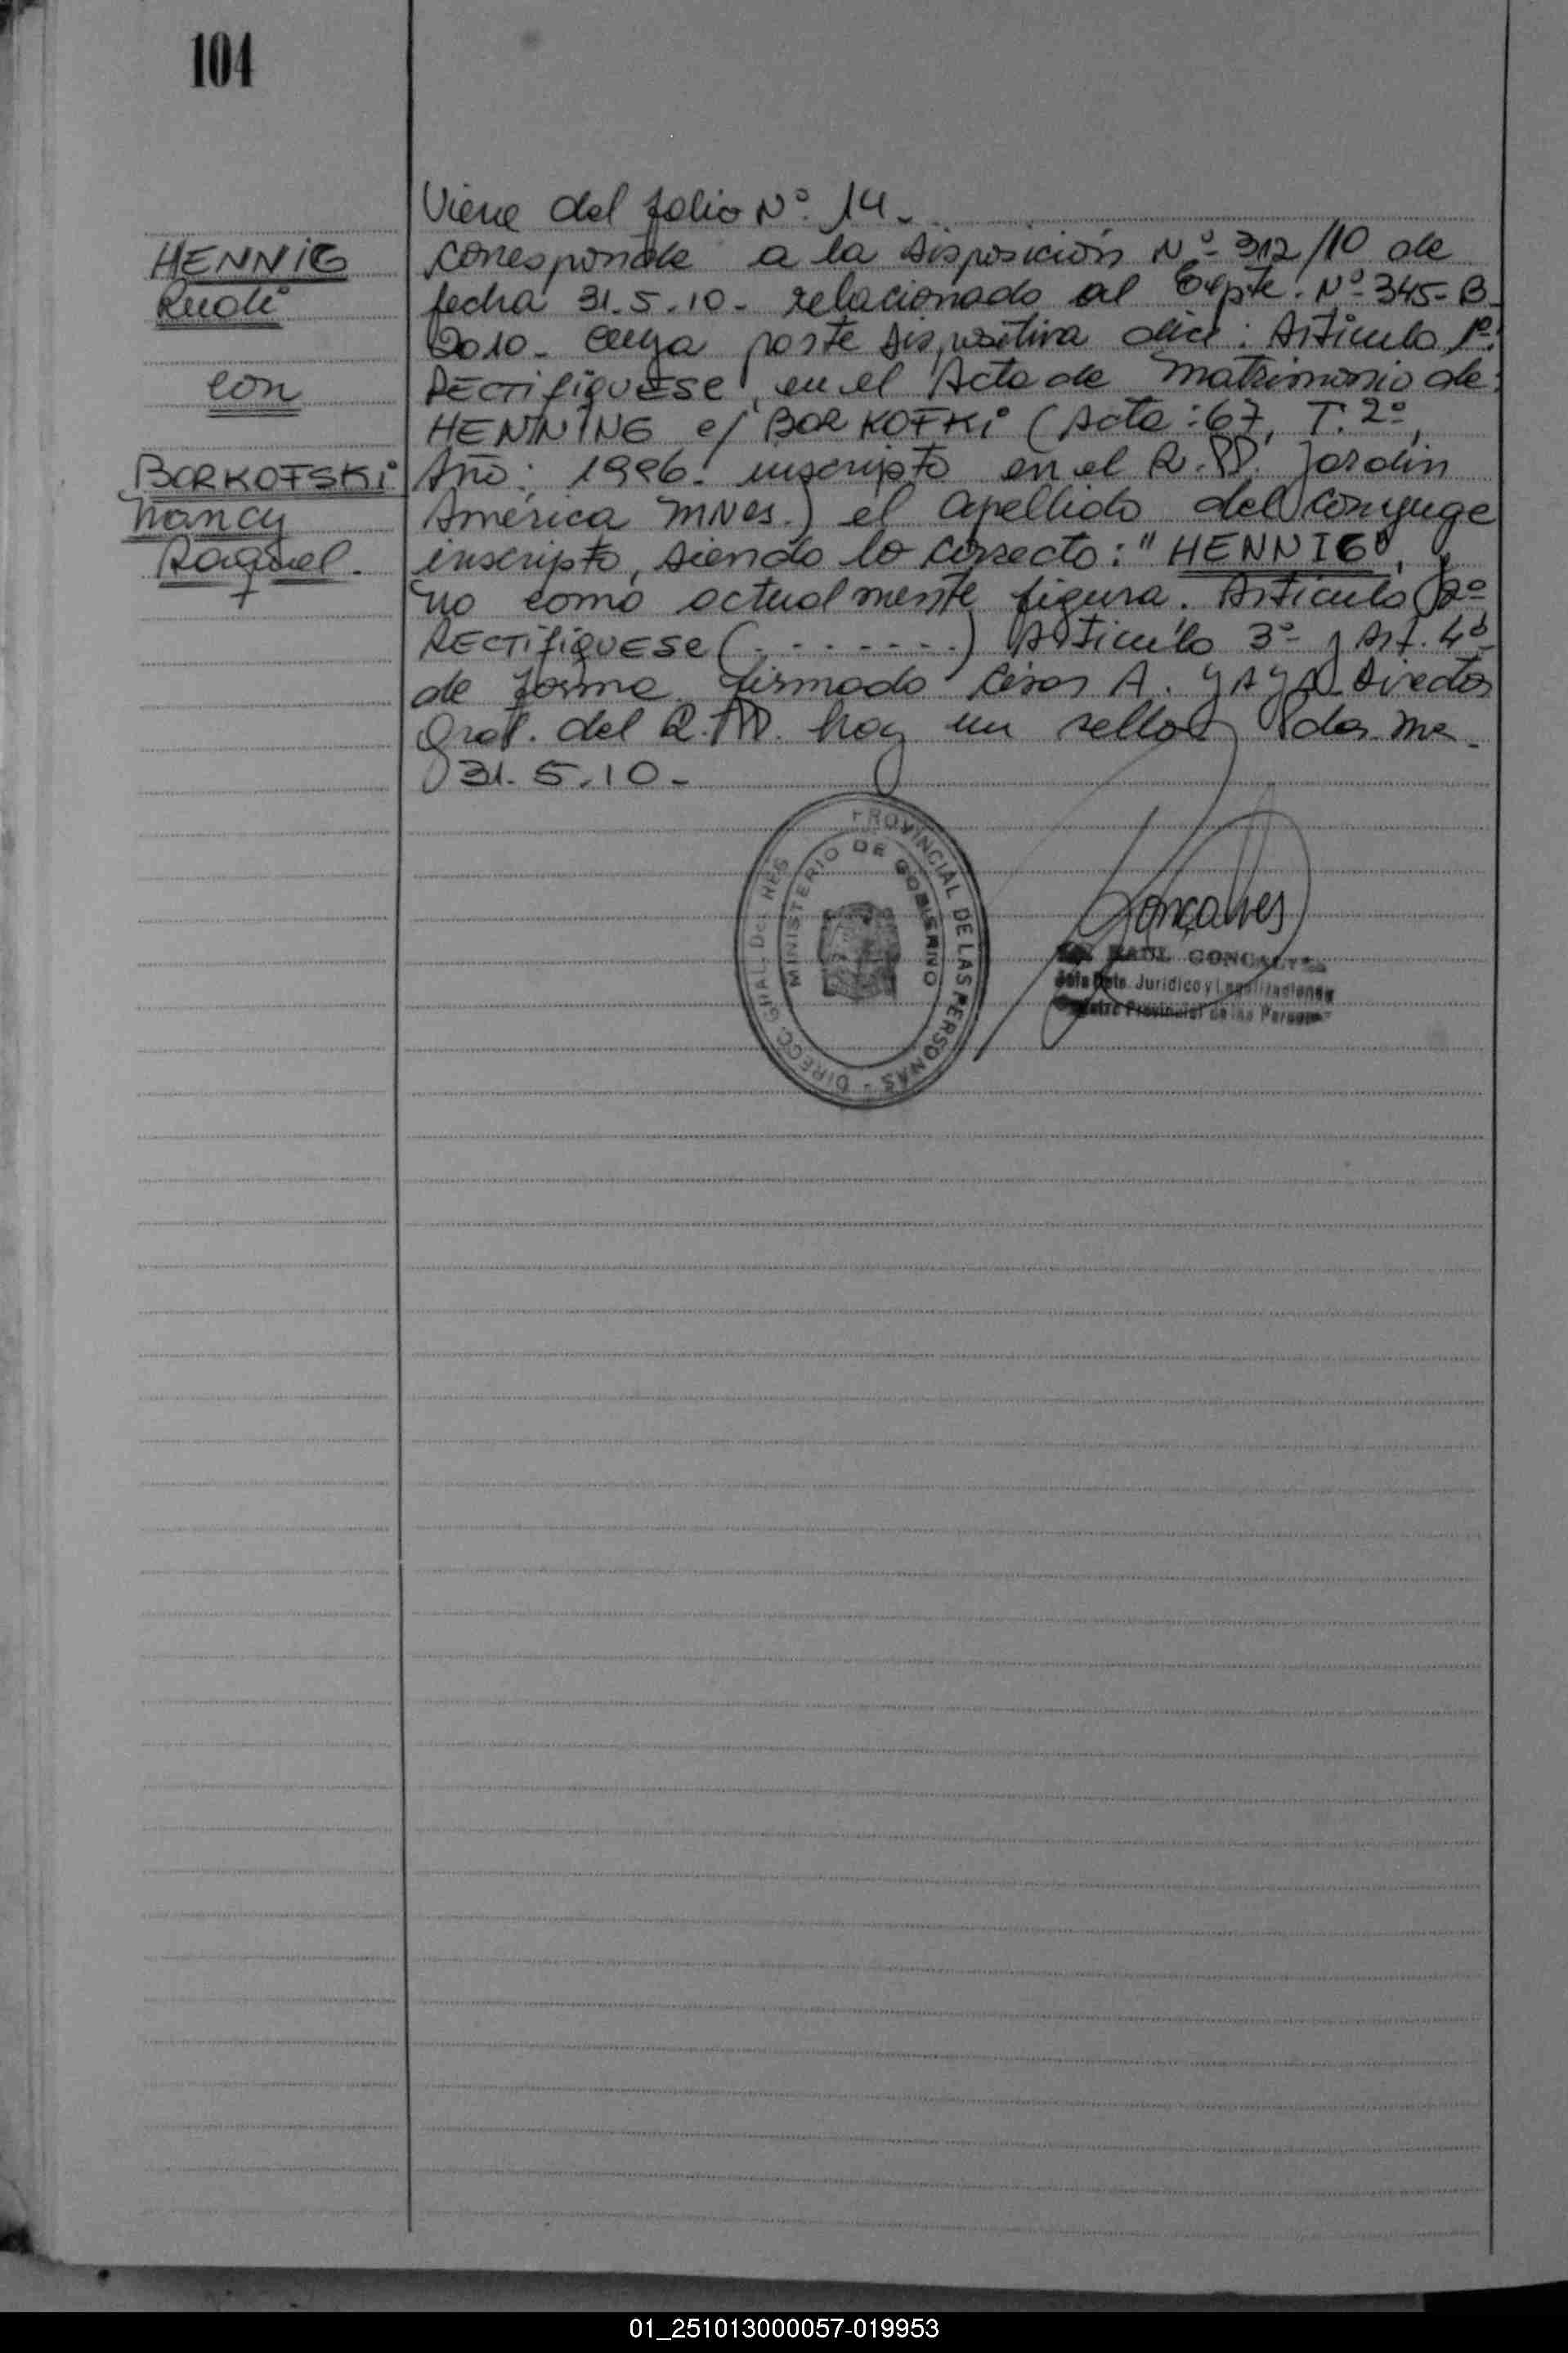 104
HENNIG
Rudi
con
BORKOFSKi
Nancy
Raquel.
Viene del folio Nº. 14.
corresponde a la disposición Nº 312/10 de
fecha 31.5.10.- relacionado al Expte. Nº 345-B-
2010.- cuya parte dispositiva dice: Articulo 1º:
RECTIFIQUESE, en el Acta de Matrimonio de:
HENNING c/ BORKOFKi (Acta: 67, T. 2º,
Año: 1986. inscripto en el R.PP. Jardin
América MNes.) el apellido del conyuge
inscripto, siendo lo correcto: "HENNIG", y
no como actualmente figura. Articulo 2º
RECTIFIQUESE (.......) Articulo 3º y Art. 4º
de forma firmado Cesar A. Director
Gral. del R.PP. hay un sello Pdas. Mnes.
31.5.10.-
DIRECC. GRAL. DEL REG. PROVINCIAL DE LAS PERSONAS
MINISTERIO DE GOBIERNO
Goncalves
RAUL GONCALVES
Jefe Dpto. Juridico y Legalizaciones
Registro Provincial de las Personas
01_251013000057-019953